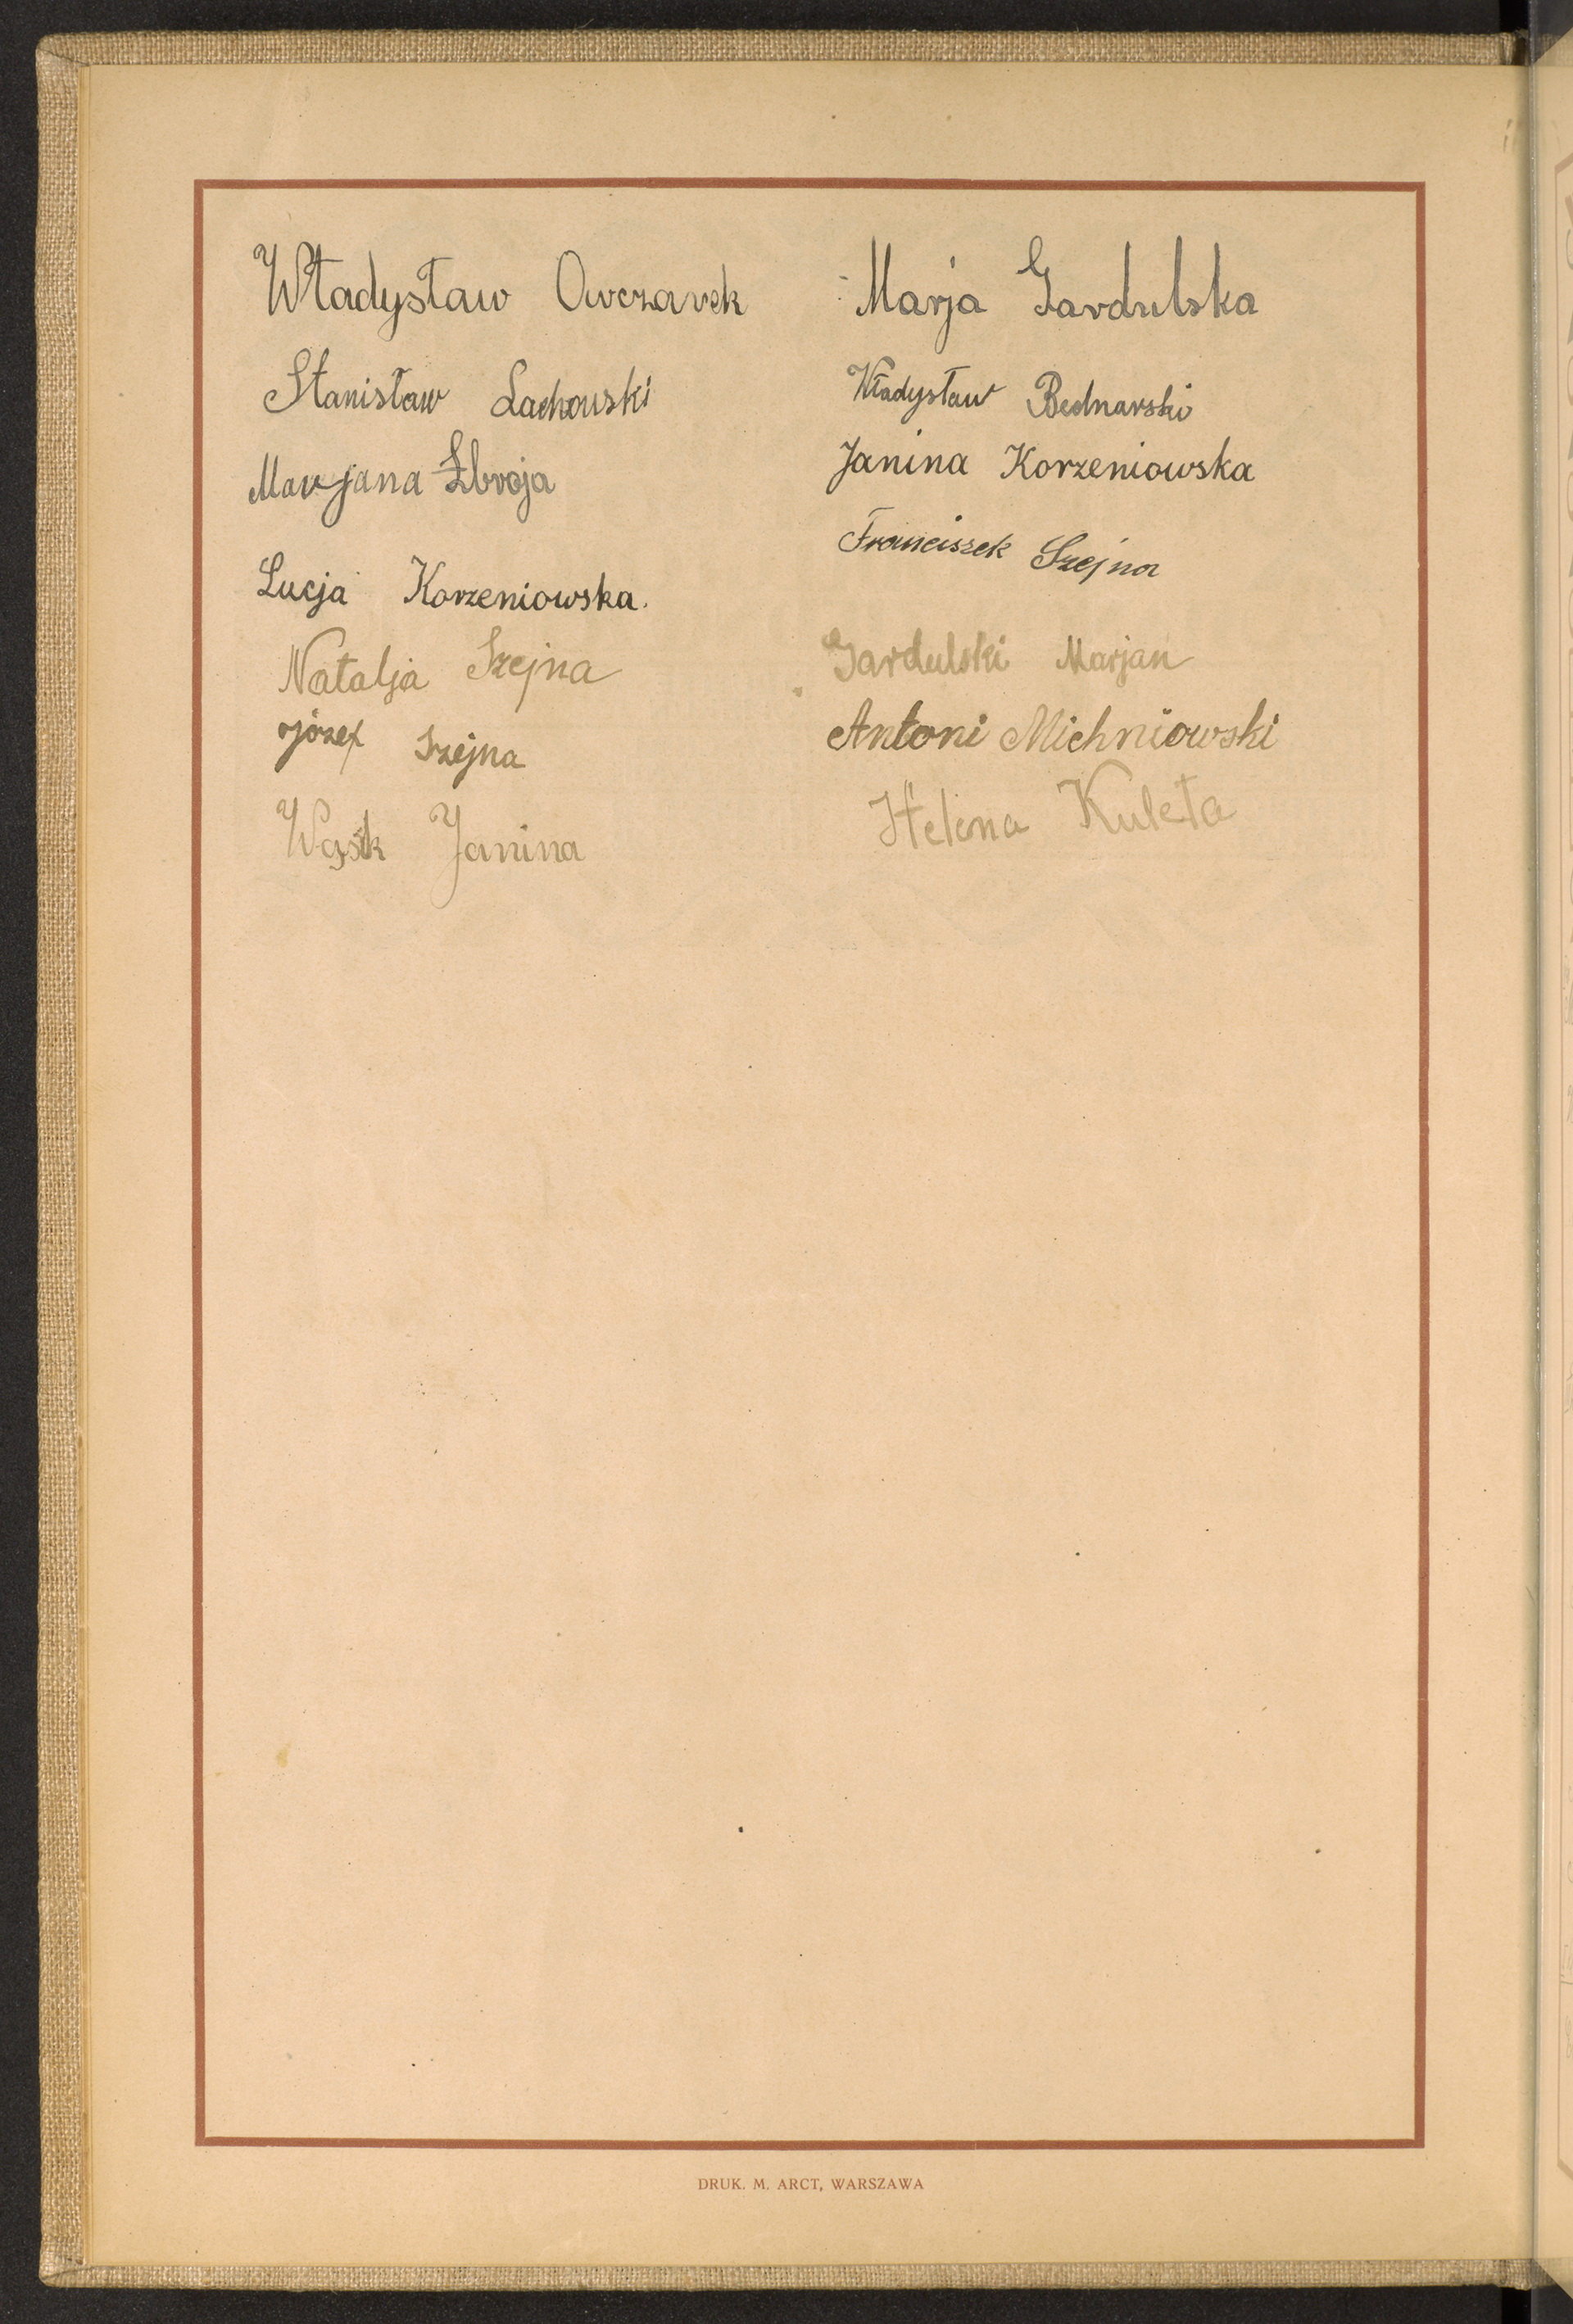 Władysław Owczarek
Stanisław Lachowski
Marjana Zbroja
Lucja Korzeniowska.
Natalja Szejna
Józef Szejna
Wąsik Janina
Marja Gardulska
Władysław Bednarski
Janina Korzeniowska
Franciszek Szejna
Gardulski Marjan
Antoni Michniowski
Helena Kuleta
DRUK. M. ARCT, WARSZAWA